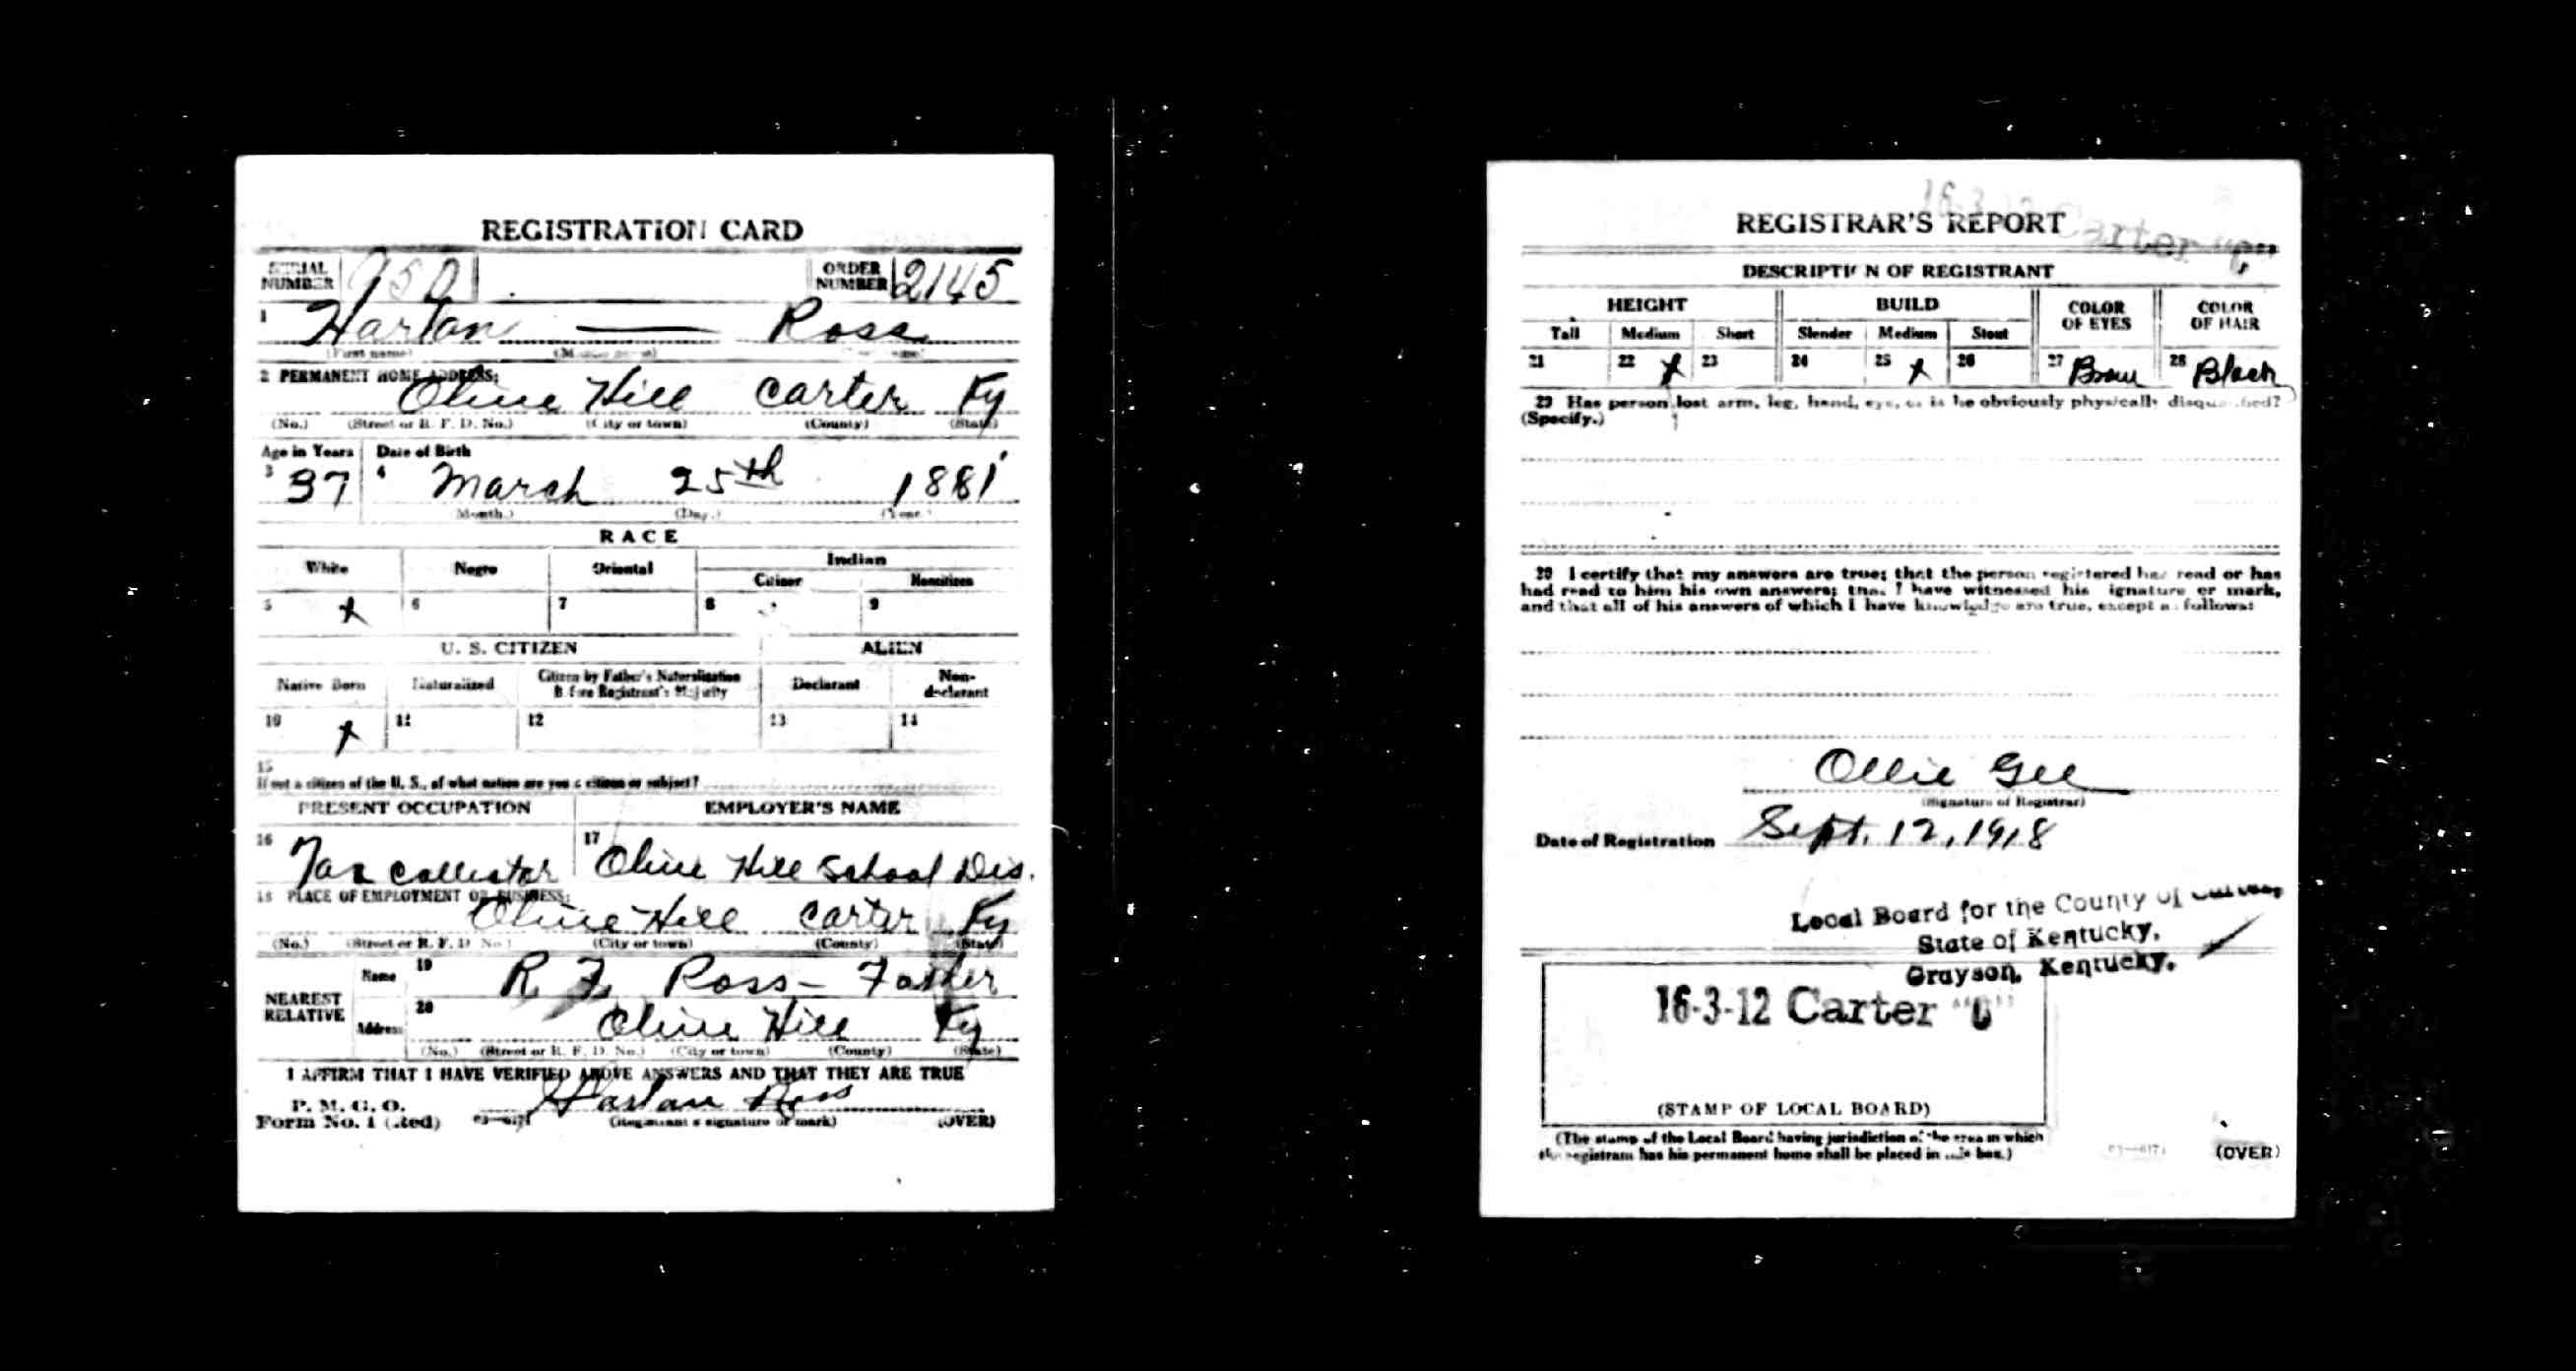 REGISTRATION CARD
SERIAL NUMBER 950 ORDER NUMBER 2145
1 Harlan — Ross
(First name) (Middle name)
2 PERMANENT HOME ADDRESS:
Olive Hill Carter Ky
(No.) (Street or R. F. D. No.) (City or town) (County) (State)
Age in Years Date of Birth
3 37 4 March 25th 1881
(Month.) (Day.) (Year.)
RACE
White Negro Oriental Indian
Citizen Noncitizen
5 x 6 7 8 9
U. S. CITIZEN ALIEN
Native Born Naturalized Citizen by Father's Naturalization Before Registrant's Majority Declarant Non-declarant
10 x 11 12 13 14
15
If not a citizen of the U. S., of what nation are you a citizen or subject?
PRESENT OCCUPATION EMPLOYER'S NAME
16 Tax Collector 17 Olive Hill School Dis.
18 PLACE OF EMPLOYMENT OR BUSINESS:
Olive Hill Carter Ky
(No.) (Street or R. F. D. No.) (City or town) (County) (State)
NEAREST RELATIVE Name 19 R F Ross - Father
Address 20 Olive Hill Ky
(No.) (Street or R. F. D. No.) (City or town) (County) (State)
I AFFIRM THAT I HAVE VERIFIED ABOVE ANSWERS AND THAT THEY ARE TRUE
P. M. G. O.
Form No. 1 (Red) Harlan Ross
(Registrant's signature or mark) (OVER)
16-3-12 Carter
REGISTRAR'S REPORT
DESCRIPTION OF REGISTRANT
HEIGHT BUILD COLOR OF EYES COLOR OF HAIR
Tall Medium Short Slender Medium Stout
21 22 x 23 24 25 x 26 27 Brow 28 Black
29 Has person lost arm, leg, hand, eye, or is he obviously physically disqualified?
(Specify.)
30 I certify that my answers are true; that the person registered has read or has
had read to him his own answers; that I have witnessed his signature or mark,
and that all of his answers of which I have knowledge are true, except as follows:
Ollie Gee
(Signature of Registrar)
Date of Registration Sept. 12, 1918
Local Board for the County of Carter,
State of Kentucky,
Grayson, Kentucky.
16-3-12 Carter "C"
(STAMP OF LOCAL BOARD)
(The stamp of the Local Board having jurisdiction of the area in which
the registrant has his permanent home shall be placed in this box.)
(OVER)